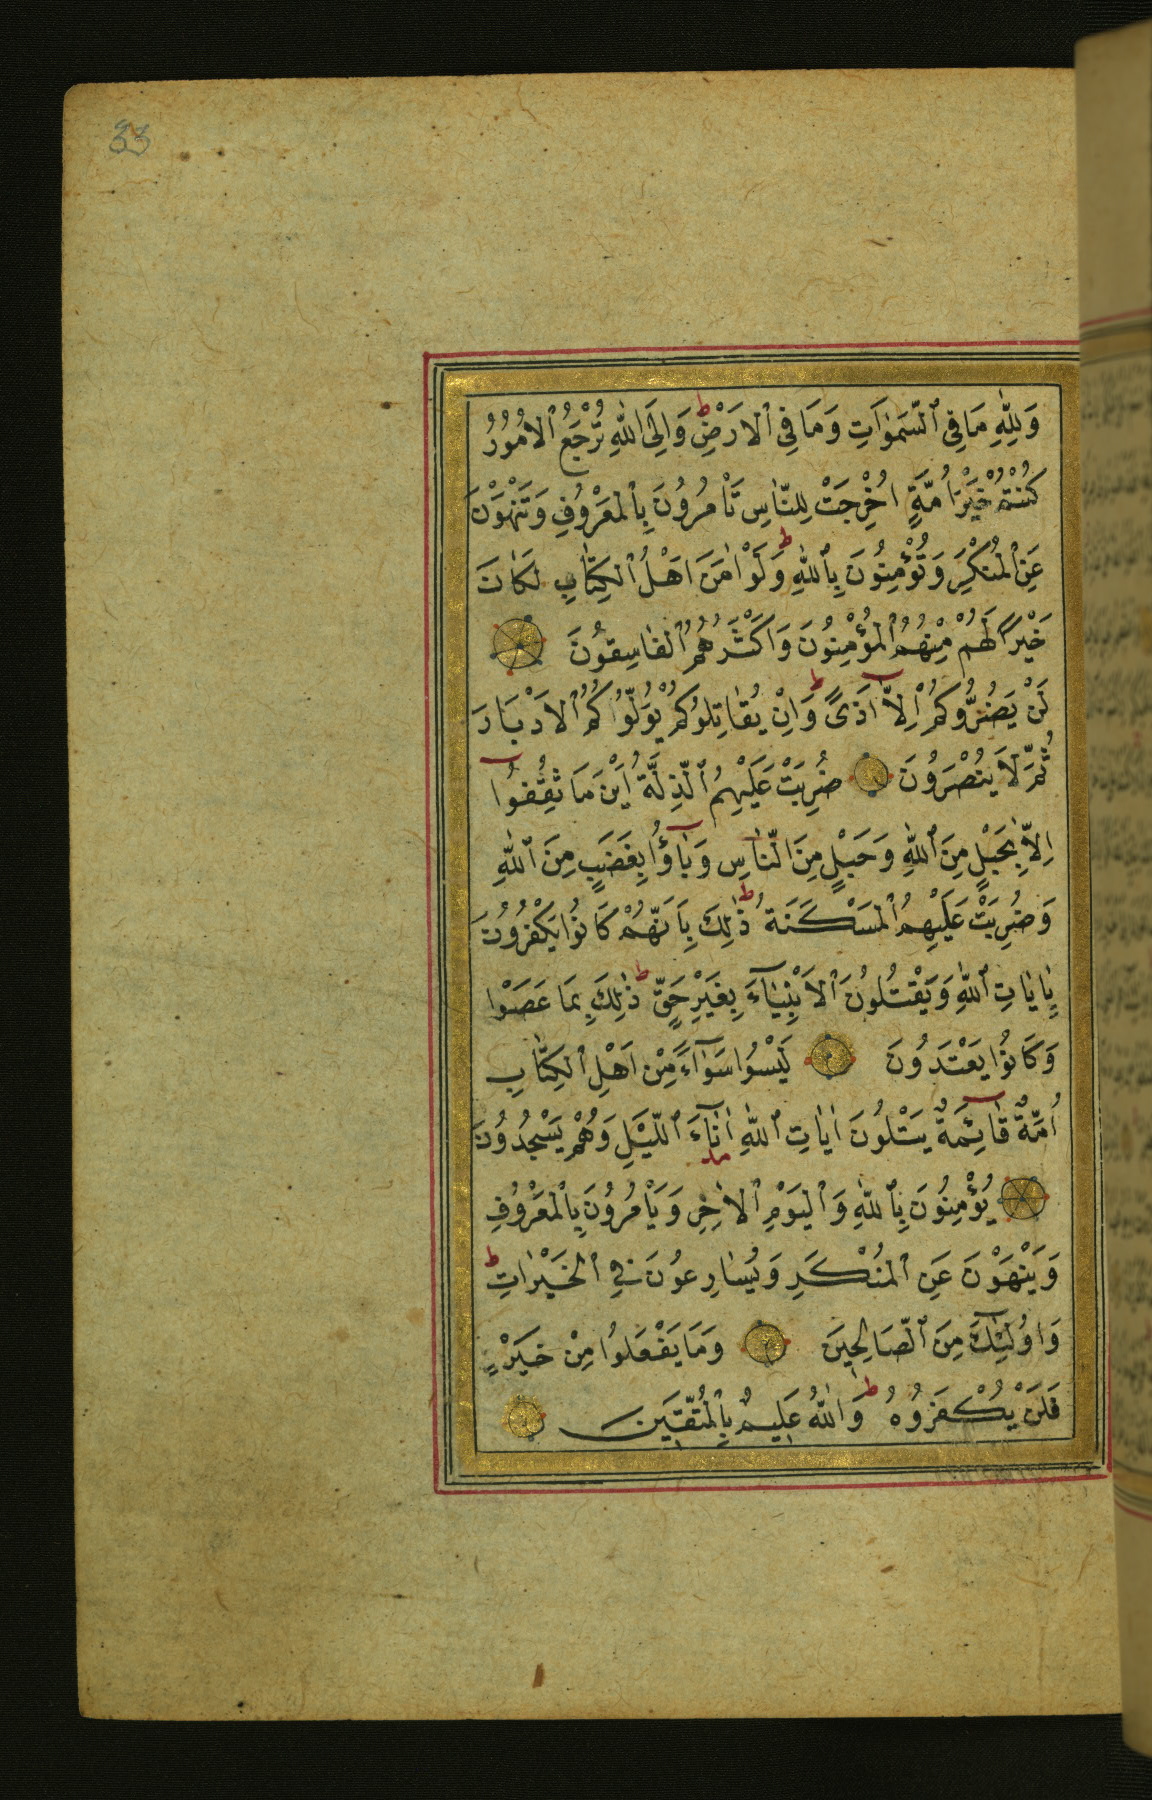 33
وَلِلّٰهِ مَا فِي ٱلسَّمٰوَاتِ وَمَا فِي ٱلْاَرْضِ ط وَاِلَى ٱللّٰهِ تُرْجَعُ ٱلْاُمُورُ
كُنْتُمْ خَيْرَ اُمَّةٍ اُخْرِجَتْ لِلنَّاسِ تَأْمُرُونَ بِٱلْمَعْرُوفِ وَتَنْهَوْنَ
عَنِ ٱلْمُنْكَرِ وَتُؤْمِنُونَ بِٱللّٰهِ ط وَلَوْ اٰمَنَ اَهْلُ ٱلْكِتَابِ لَكَانَ
خَيْرًا لَهُمْ مِنْهُمُ ٱلْمُؤْمِنُونَ وَاَكْثَرُهُمُ ٱلْفَاسِقُونَ
لَنْ يَضُرُّوكُمْ اِلَّا اَذًى ط وَاِنْ يُقَاتِلُوكُمْ يُوَلُّوكُمُ ٱلْاَدْبَارَ
ثُمَّ لَا يُنْصَرُونَ ضُرِبَتْ عَلَيْهِمُ ٱلذِّلَّةُ اَيْنَ مَا ثُقِفُوا
اِلَّا بِحَبْلٍ مِنَ ٱللّٰهِ وَحَبْلٍ مِنَ ٱلنَّاسِ وَبَاؤُا بِغَضَبٍ مِنَ ٱللّٰهِ
وَضُرِبَتْ عَلَيْهِمُ ٱلْمَسْكَنَةُ ط ذٰلِكَ بِاَنَّهُمْ كَانُوا يَكْفُرُونَ
بِاٰيَاتِ ٱللّٰهِ وَيَقْتُلُونَ ٱلْاَنْبِيَاءَ بِغَيْرِ حَقٍّ ط ذٰلِكَ بِمَا عَصَوْا
وَكَانُوا يَعْتَدُونَ لَيْسُوا سَوَآءً مِنْ اَهْلِ ٱلْكِتَابِ
اُمَّةٌ قَائِمَةٌ يَتْلُونَ اٰيَاتِ ٱللّٰهِ اٰنَآءَ ٱللَّيْلِ وَهُمْ يَسْجُدُونَ
يُؤْمِنُونَ بِٱللّٰهِ وَٱلْيَوْمِ ٱلْاٰخِرِ وَيَأْمُرُونَ بِٱلْمَعْرُوفِ
وَيَنْهَوْنَ عَنِ ٱلْمُنْكَرِ وَيُسَارِعُونَ فِي ٱلْخَيْرَاتِ ط
وَاُولٰئِكَ مِنَ ٱلصَّالِحِينَ وَمَا يَفْعَلُوا مِنْ خَيْرٍ
فَلَنْ يُكْفَرُوهُ ط وَٱللّٰهُ عَلِيمٌ بِٱلْمُتَّقِينَ